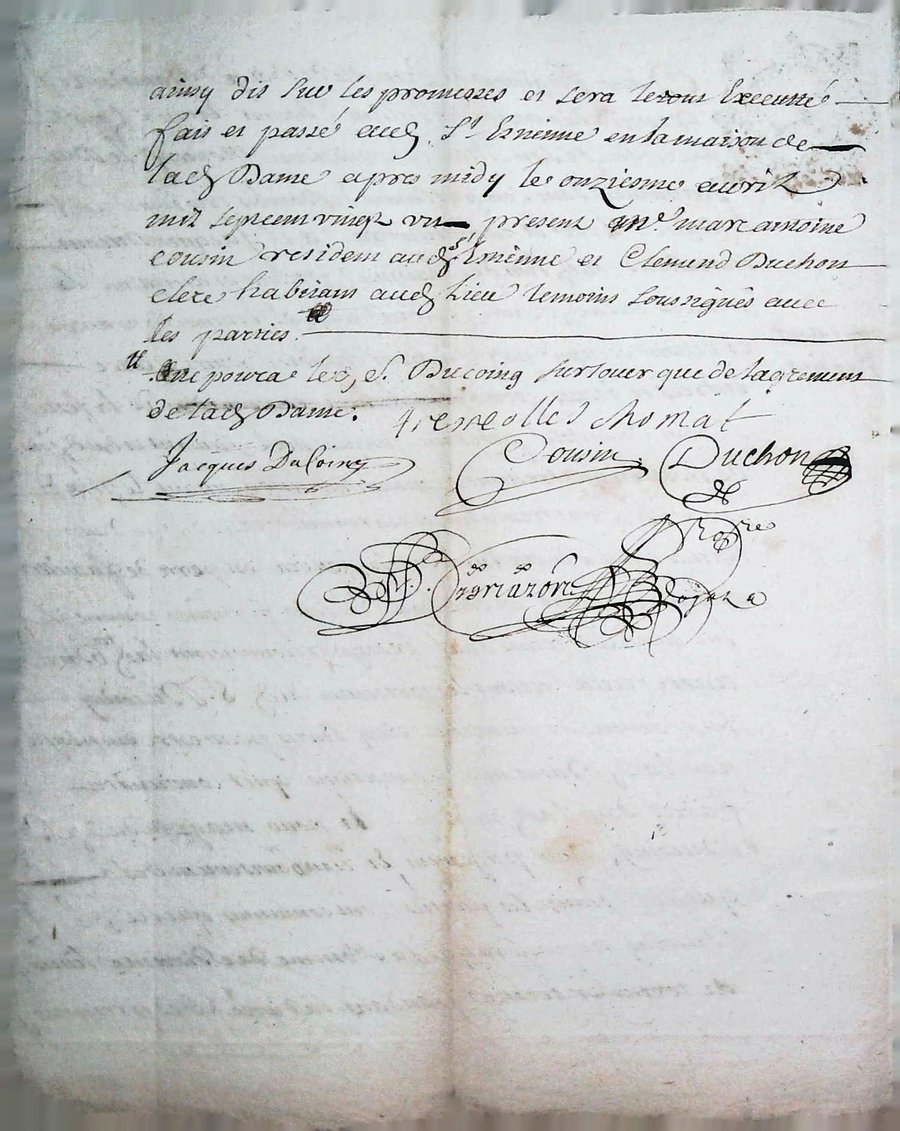 ainsy dis sur les promesses et sera letout Executté
fait et passé aud St Etnienne en la maison de
lad Dame apres midy le onziesme avril
mil septcent vingt un present Me marc antoine
cousin resident aud St Etnienne et Clemend Duchon
clerc habitant aud Lieu temoins soussignés avec
les parties
ne poura led S. Ducoing surlouer que de lagrement
de lad Dame.
greneolles chomat
Jacques DuCoing
Cousin
Duchon